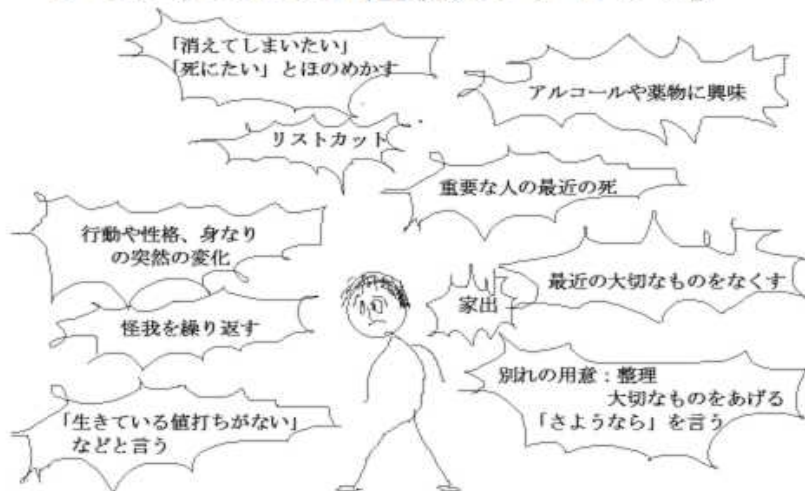 「消えてしまいたい」
「死にたい」とほのめかす
アルコールや薬物に興味
リストカット
重要な人の最近の死
行動や性格、身なり
の突然の変化
最近の大切なものをなくす
家出
怪我を繰り返す
別れの用意：整理
大切なものをあげる
「さようなら」を言う
「生きている値打ちがない」
などと言う